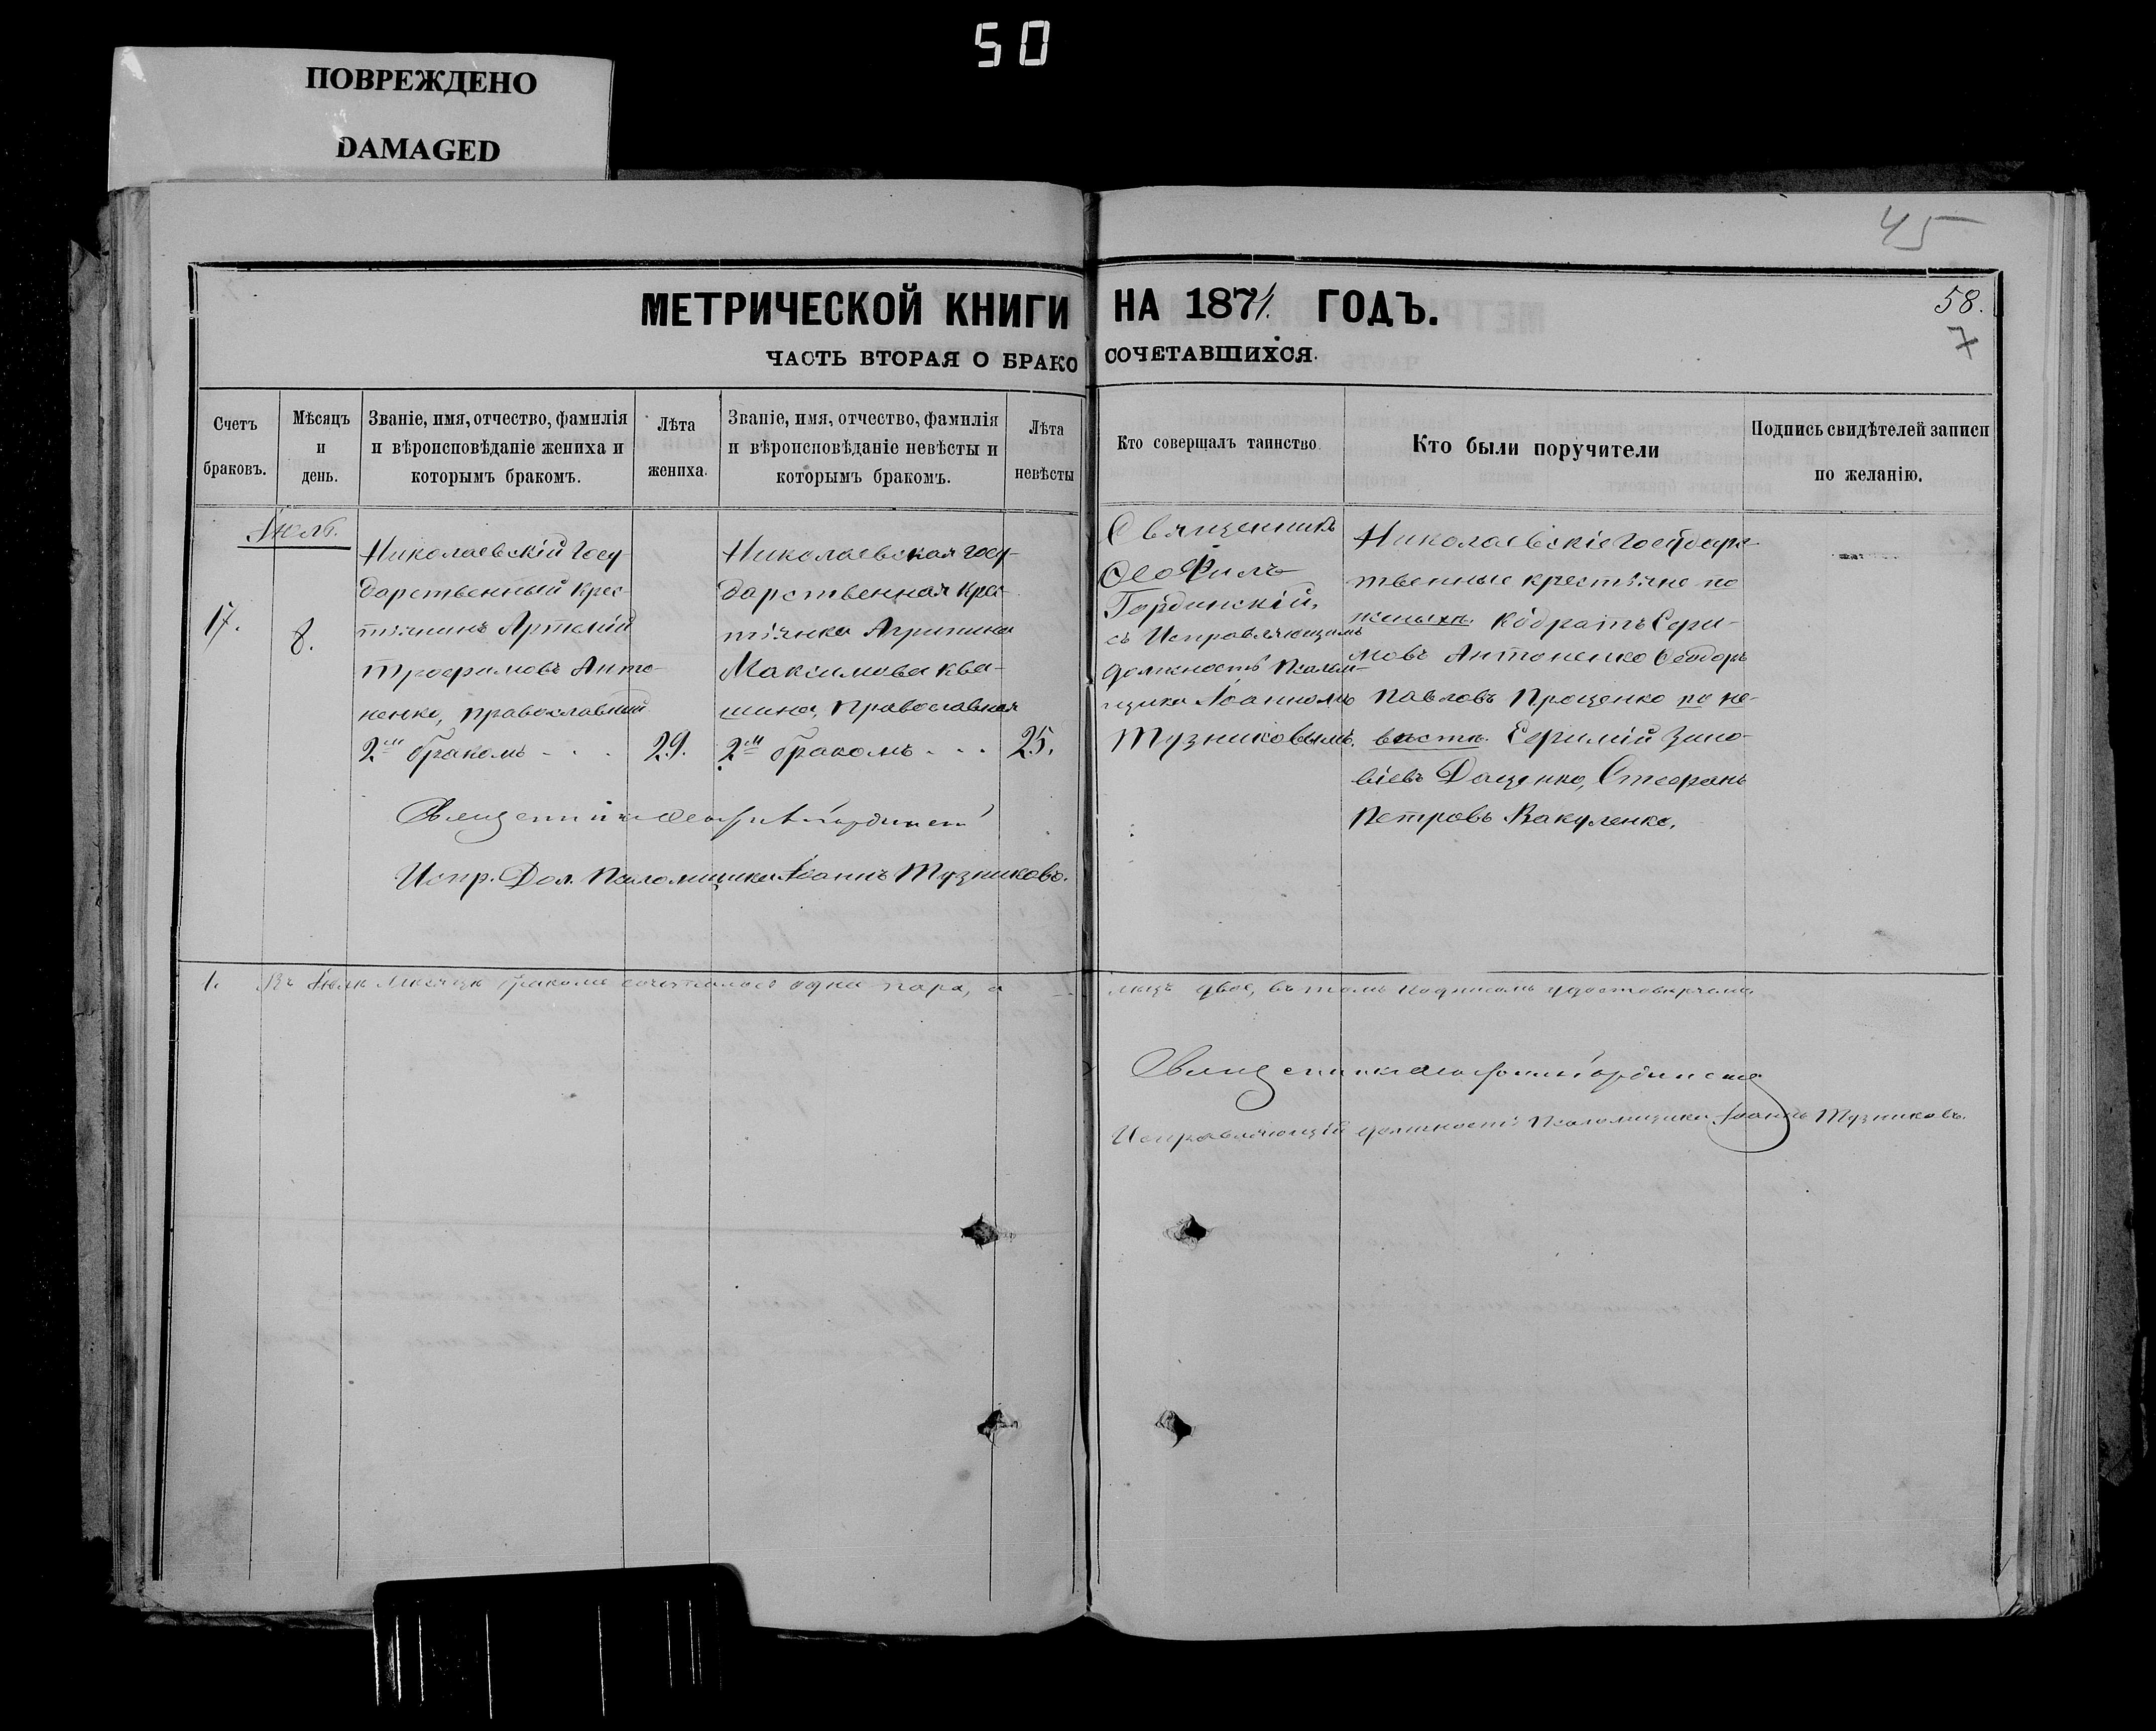 50
ПОВРЕЖДЕНО
DAMAGED
45
МЕТРИЧЕСКОЙ КНИГИ НА 1871. ГОДЪ.
58.
7
ЧАСТЬ ВТОРАЯ О БРАКОСОЧЕТАВШИХСЯ.
Счетъ браковъ.
Мѣсяцъ и день.
Званіе, имя, отчество, фамилія
и вѣроисповѣданіе жениха и
которымъ бракомъ.
Лѣта жениха.
Званіе, имя, отчество, фамилія
и вѣроисповѣданіе невѣсты и
которымъ бракомъ.
Лѣта невѣсты
Кто совершалъ таинство.
Кто были поручители
Подпись свидѣтелей записи
по желанію.
Іюль.
17.
8.
Николаевскій Госу-
дарственный крес-
тьянинъ Артемій
Трофимовъ Анто-
ненко, православный
2м бракомъ - . .
29.
Николаевская госу-
дарственная крес-
тьянка Агрипина
Максимова Ква-
шина, Православная
2м бракомъ - . .
25.
Священникъ
Ѳеофилъ
Гординскій,
съ Исправляющимъ
должность Псалом-
щика Іоанномъ
Тузниковымъ.
Николаевскіе Государс-
твенные крестьяне по
женыхѣ. Кодратъ Ефи-
мовъ Антоненко Ѳеодоръ
Павловъ Проценко по не-
вѣстѣ. Ефимій Зино-
віевъ Доценко, Стефанъ
Петровъ Вакуленко.
Священникъ Ѳеофилъ Гординскій
Испр. Дол. Псаломщика Іоаннъ Тузниковъ.
1. Въ Іюлѣ мѣсяцѣ бракомъ сочеталось одна пара, а лицъ двое, въ томъ подписомъ удостовѣряемъ
Священникъ Ѳеофилъ Гординскій
Исправляющій должность Псаломщика Іоаннъ Тузниковъ.